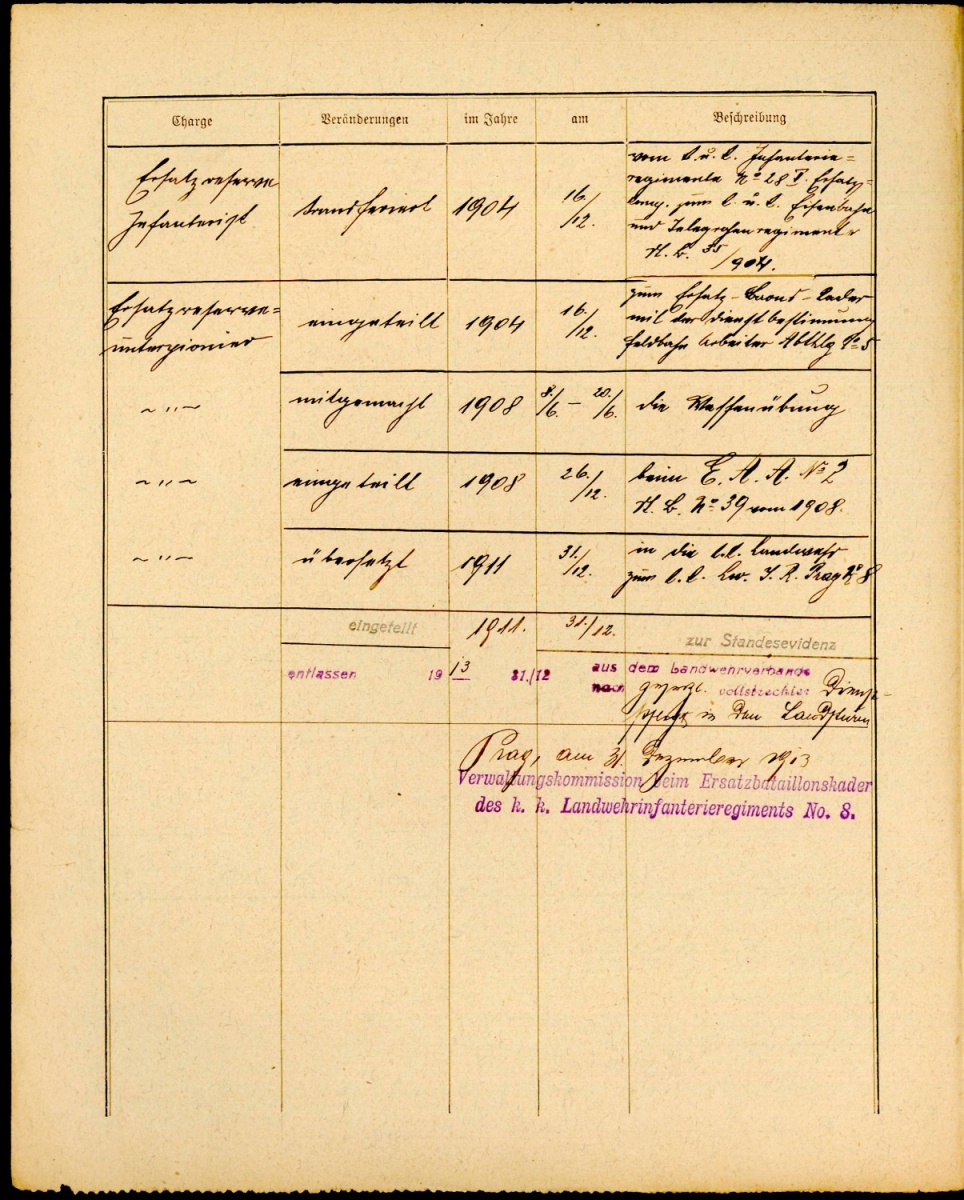 Charge Veränderungen im Jahre am Beschreibung
Ersatzreserve
Infanterist
transferiert 1904 16./12.
vom k. u. k. Infanterie=
regimente No 28 I. Ersatz=
komp. zum k. u. k. Eisenbahn
und Telegrafenregiment
R. B. 35/904.
Ersatzreserve=
unterpionier
eingeteilt 1904 16./12.
zum Ersatz-Baons-Kader
mit der Dienstbestimmung
Feldbahn Arbeiter Abthlg No 5
~ " ~ mitgemacht 1908 8./6. – 20./6. die Waffenübung
~ " ~ eingeteilt 1908 26./12.
beim E. A. A. No 2
R. B. No 39 vom 1908.
~ " ~ übersetzt 1911 31./12.
in die k. k. Landwehr
zum k. k. Lw. I. R. Prag No 8
eingeteilt 1911. 31./12. zur Standesevidenz
entlassen 1913 31./12 aus dem Landwehrverbande
nach gesetzl. vollstreckter Dienst-
pflicht in den Landsturm
Prag, am 31. Dezember 1913
Verwaltungskommission beim Ersatzbataillonskader
des k. k. Landwehrinfanterieregiments No. 8.